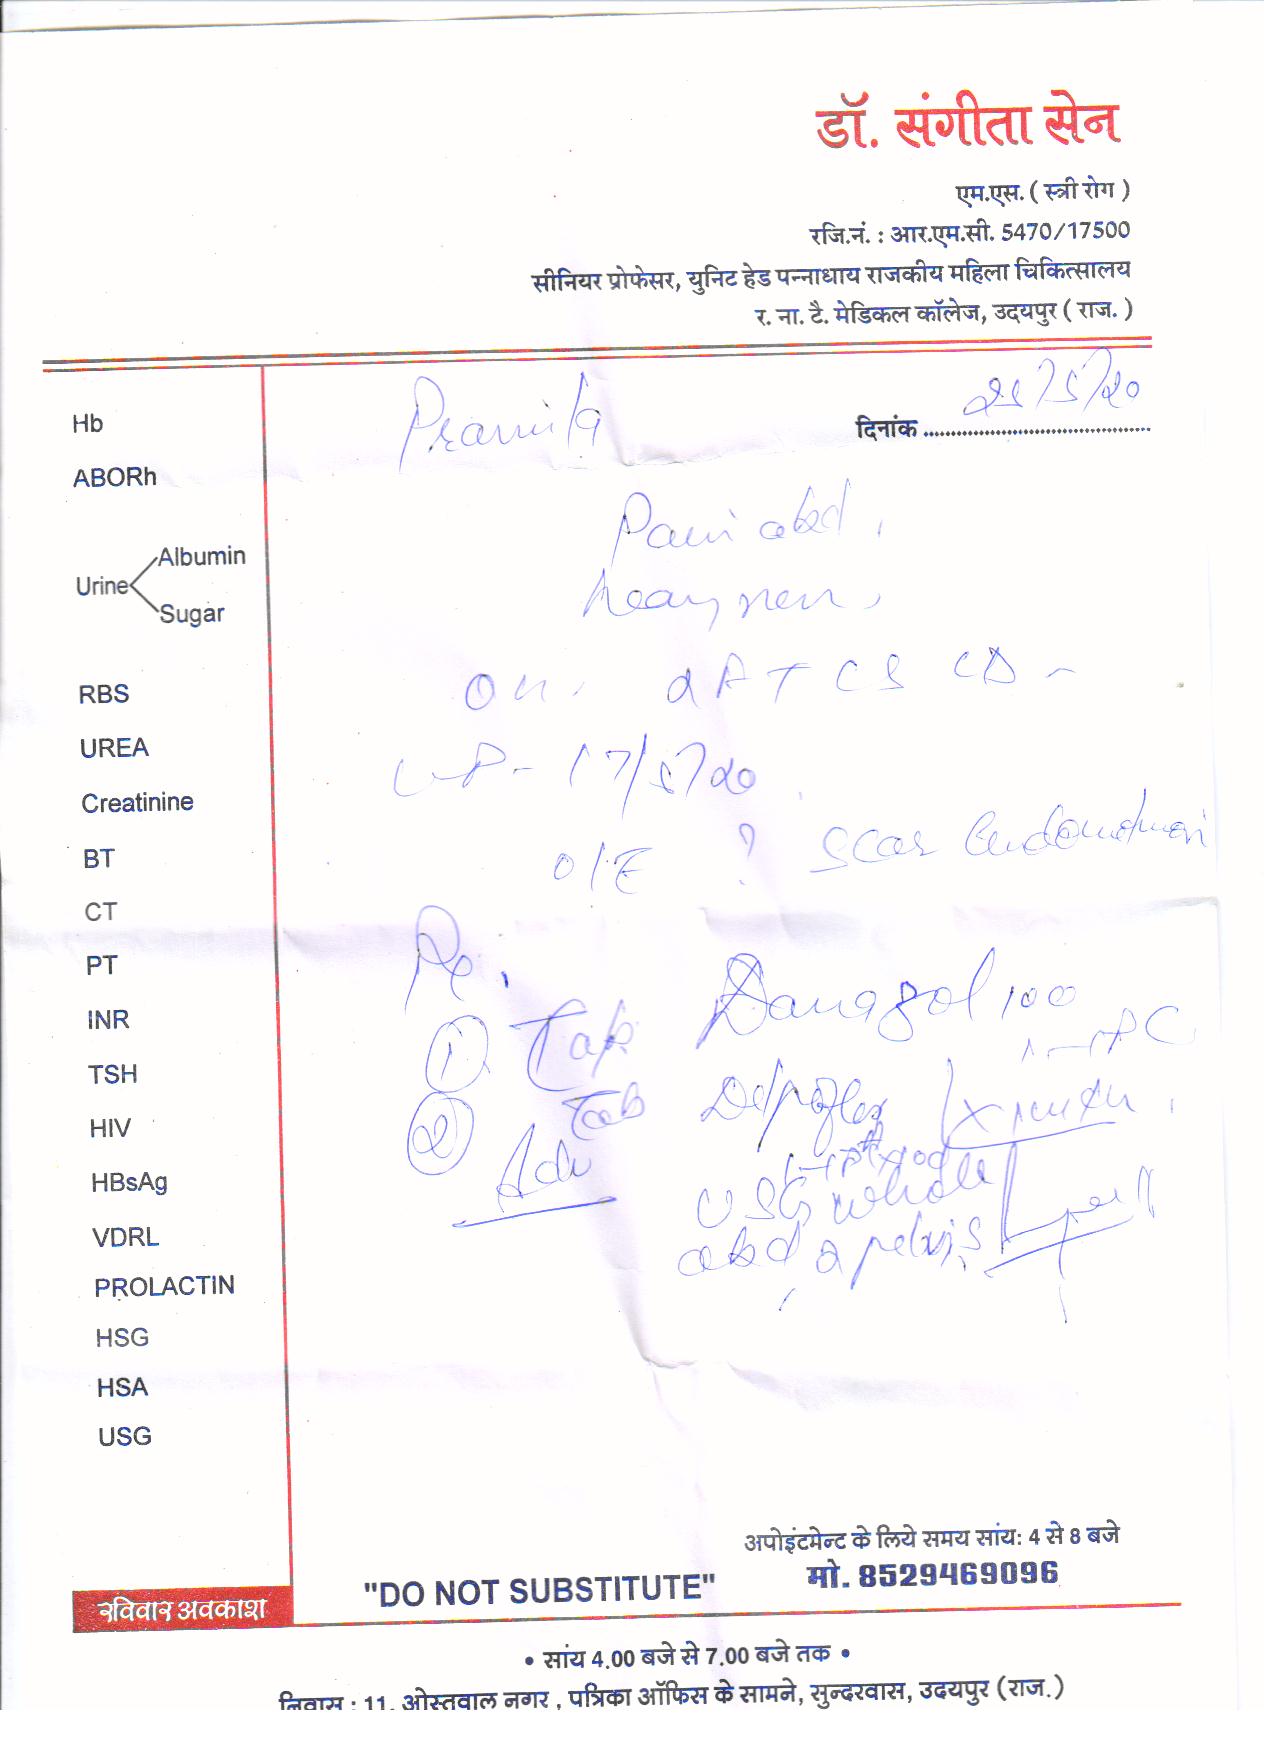 डॉ. संगीता सेन
एम.एस. ( स्त्री रोग )
रजि.नं. : आर.एम.सी. 5470/17500
सीनियर प्रोफेसर, युनिट हेड पन्नाधाय राजकीय महिला चिकित्सालय
र. ना. टै. मेडिकल कॉलेज, उदयपुर ( राज. )
दिनांक 25/5/20
Hb
ABORh
Urine
Albumin
Sugar
RBS
UREA
Creatinine
BT
CT
PT
INR
TSH
HIV
HBsAg
VDRL
PROLACTIN
HSG
HSA
USG
Pain abd,
O/H. 2FTCS
17/5/20
O/E ? Scar
Rx.
① Tab Danazol 100
② Tab
Adv USG whole
abd & pelvis
अपोइंटमेन्ट के लिये समय सांय: 4 से 8 बजे
मो. 8529469096
"DO NOT SUBSTITUTE"
रविवार अवकाश
• सांय 4.00 बजे से 7.00 बजे तक •
निवास : 11, ओस्तवाल नगर , पत्रिका ऑफिस के सामने, सुन्दरवास, उदयपुर (राज.)